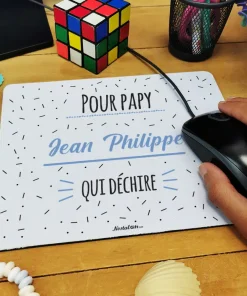 POUR PAPY
Jean Philippe
QUI DÉCHIRE